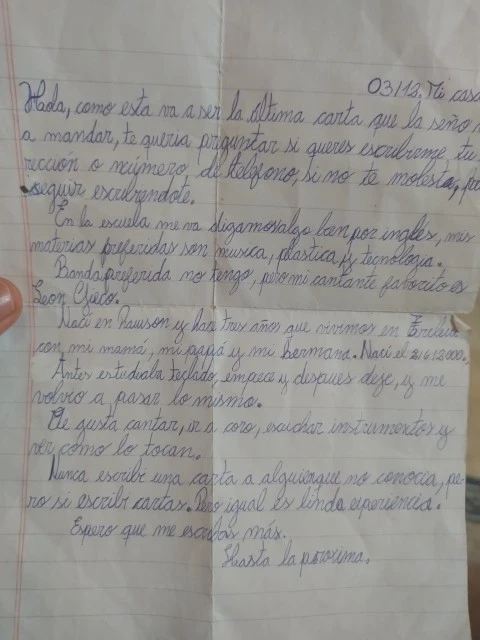 03/12, Mi casa
Hola, como esta va a ser la última carta que la seño
a mandar, te queria preguntar si queres escribirme, tu
rección o número de teléfono, si no te molesta,
seguir escribrendote.
En la escuela me va digamos algo bien por inglés, mis
materias preferidas son musica, plastica y tecnologia.
Banda preferida no tengo, pero mi cantante favorito es
Leon Gieco.
Naci en Rawson y hace tres años que vivimos en
con mi mamá, mi papá y mi hermana. Naci el 21612000.
Antes estudiaba teclado, empece y despues deje, y me
volvio a pasar lo mismo.
Me gusta cantar, ir a coro, escuchar instrumentos y
ver como lo tocan.
Nunca escribi una carta a alguien que no conocia, pe-
ro si escribi cartas. Pero igual es linda experiencia.
Espero que me escribas más.
Hasta la proxima.